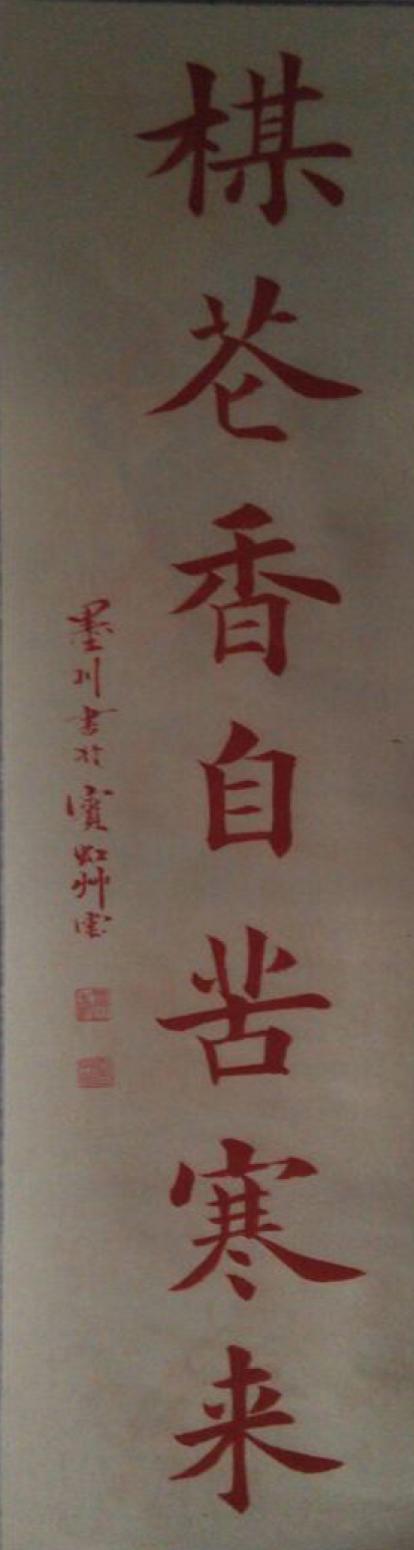 楳花香自苦寒来
墨川書於賓虹艸堂